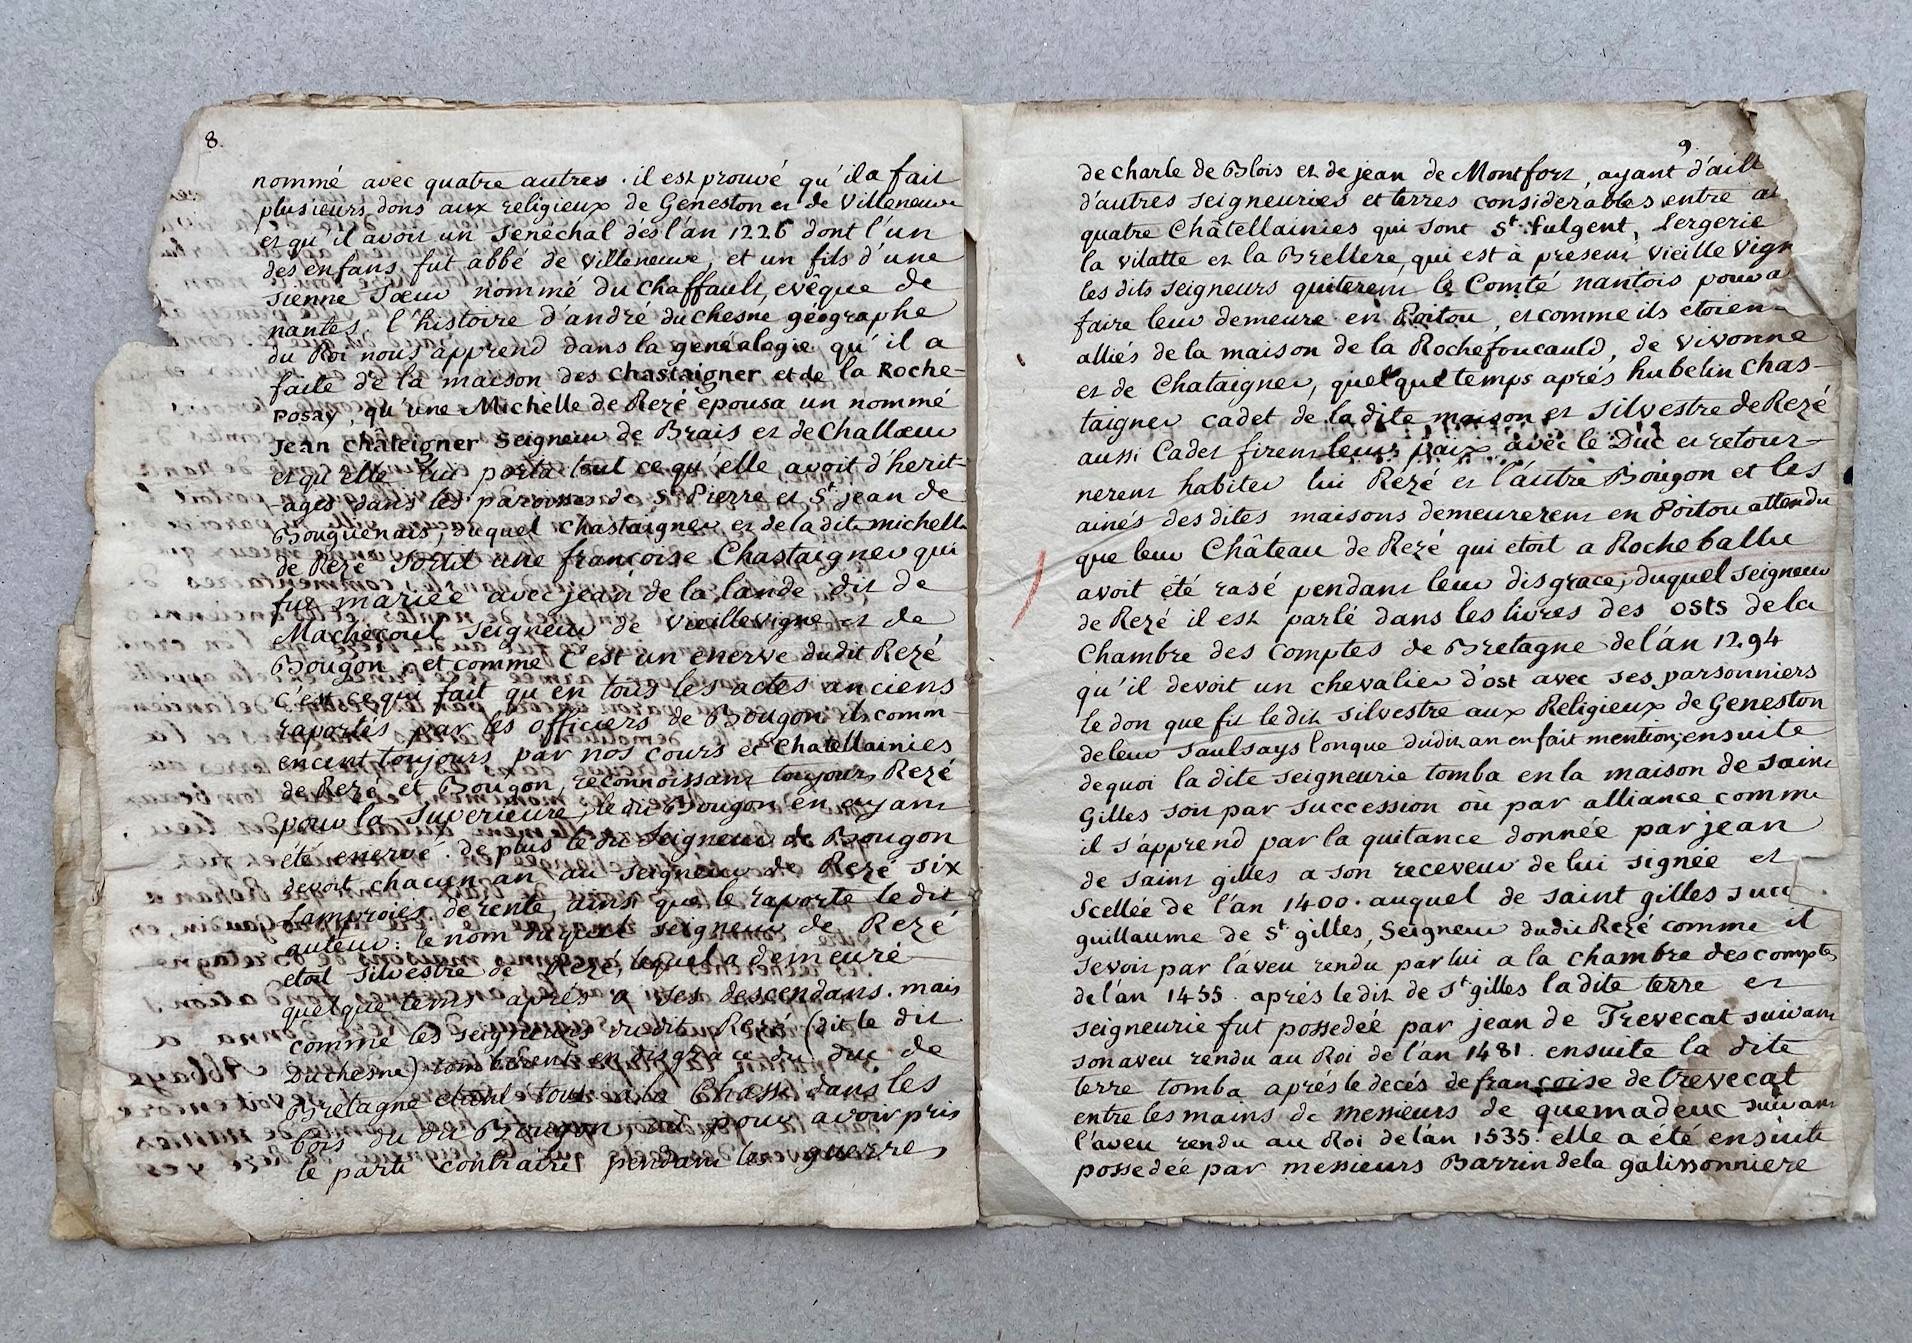 8.
nommé avec quatre autres. il est prouvé qu'il a fait
plusieurs dons aux religieux de Geneston et de Villeneuve
et qu'il avoit un Senéchal dés l'án 1226 dont l'un
des enfans fut abbé de Villeneuve, et un fils d'une
sienne sœur nommé du Chaffault, evêque de
nantes. l'histoire d'andré duchesne géographe
du Roi nous apprend dans la genéalogie qu'il a
faite de la maison des Chastaigner et de la Roche-
Posay, qu'une Michelle de Rezé épousa un nommé
Jean Chateigner Seigneur de Brais et de Challoeu
et qu'elle lui porta tout ce qu'elle avoit d'herit-
-ages dans les paroisses de St Pierre et St jean de
Bouguenais, duquel Chastaigner et de la dite michelle
de Rezé sortit une françoise Chastaigner qui
fut mariée avec jean de la lande dit de
Machecoul seigneur de Vieillevigne et de
Bougon, et comme C'est un enerve dudit Rezé
c'est ce qui fait qu'en tous les actes anciens
raportés par les officiers de Bougon ils comm-
encent toujours par nos cours et Chatellainies
de Rezé et Bougon, reconnoissant toujours Rezé
pour la Superieure, le dit Bougon en ayant
été enervé. de plus le dit seigneur de Bougon
devoit chacun an au seigneur de Rezé six
Lamproies de rente, ainsi que le raporte le dit
auteur: le nom duquel seigneur de Rezé
etoit silvestre de Rezé, lequel a demeuré
quelque tems aprés a ses descendans. mais
comme les seigneurs dudit Rezé (dit le dit
Duchesne) tomberent en disgrace du duc de
Bretagne etant tous a la Chasse dans les
bois du dit Bougon, pour avoir pris
le parti contraire pendant les guerres
9
de charle de Blois et de jean de Montfort, ayant d'aill
d'autres seigneuries et terres considerables entre
quatre Châtellainies qui sont St fulgent, Lergerie
la vilatte et la Brellere, qui est à present vieille vign
les dits seigneurs quiterent le Comté nantois pour a
faire leur demeure en Poitou, et comme ils etoien
alliés de la maison de la Rochefoucauld, de vivonne
et de Chataigner, quelque temps aprés hubelin chas-
taigner cadet de la dite maison et silvestre de Rezé
aussi Cadet firent leurs paix avec le Duc et retour-
nerent habiter lui Rezé et l'áutre Bougon et les
ainés des dites maisons demeurerent en Poitou attendu
que leur Château de Rezé qui etoit a Roche ballue
avoit été rasé pendant leur disgrace, duquel seigneur
de Rezé il est parlé dans les livres des osts de la
Chambre des Comptes de Bretagne de l'án 1294
qu'il devoit un chevalier d'ost avec ses parsonniers
le don que fit le dit silvestre aux Religieux de Geneston
de leur saulsays longue dudit an en fait mention, ensuite
dequoi la dite seigneurie tomba en la maison de saint
Gilles soit par succession où par alliance comme
il s'apprend par la quitance donnée par jean
de saint gilles a son receveur de lui signée et
Scellée de l'an 1400. auquel de saint gilles succ
guillaume de St gilles, Seigneur dudit Rezé comme il
se voit par l'áveu rendu par lui a la chambre des comptes
de l'án 1455. aprés le dit de St gilles la dite terre et
seigneurie fut possedeé par jean de Trevecat suivant
son aveu rendu au Roi de l'án 1481. ensuite la dite
terre tomba aprés le decés de françoise de trevecat
entre les mains de messieurs de quemadeuc suivant
l'aveu rendu au Roi de l'án 1535. elle a été ensuite
possedeé par messieurs Barrin de la galissonniere